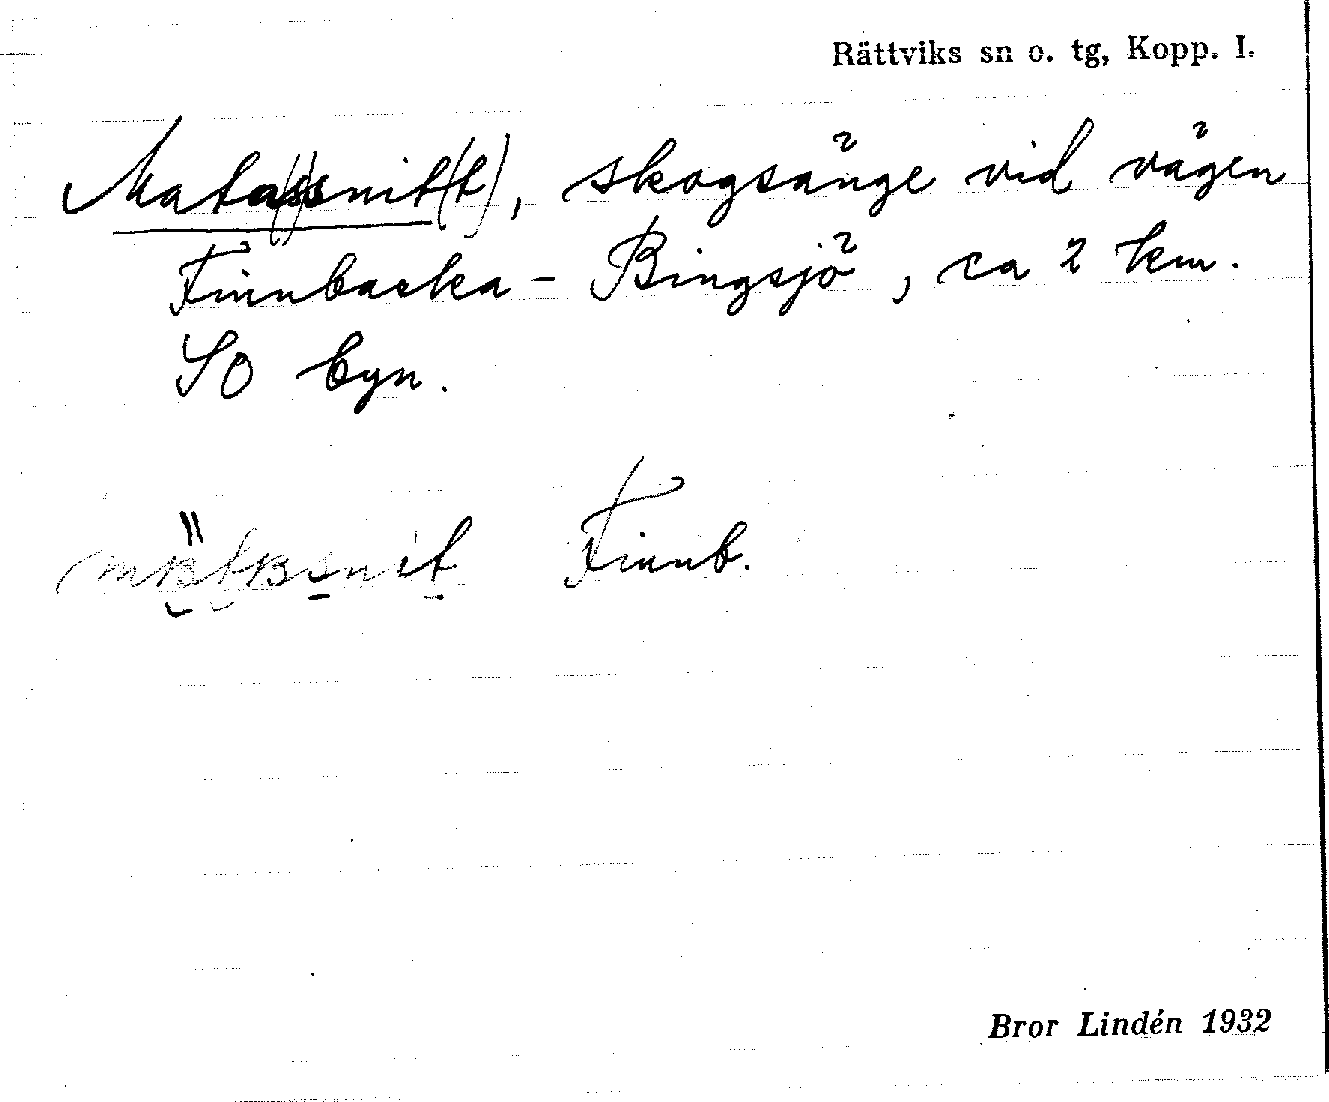 Rättviks sn o. tg, Kopp. l.
Matassnit(t), skogsänge vid vägen
Finnbacka - Bingsjö, ca 2 km.
SO byn.
Finnb.
Bror Lindén 1932